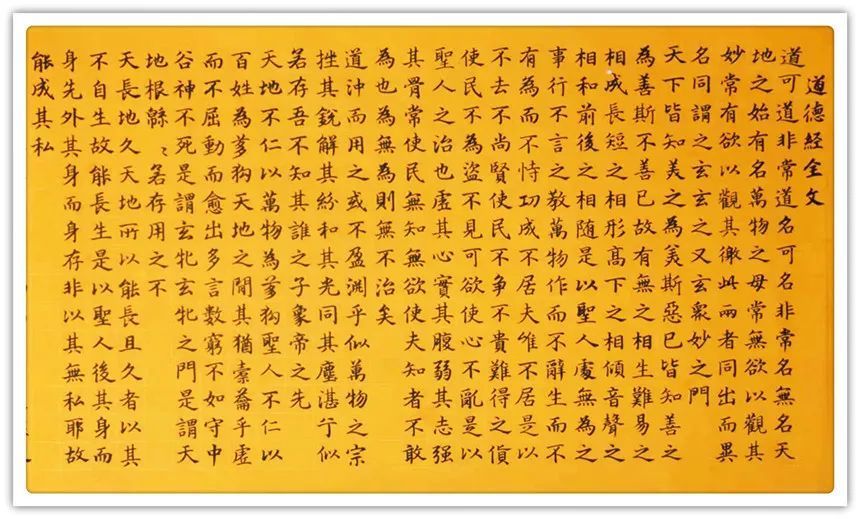 道德經全文
道可道非常道名可名非常名無名天
地之始有名萬物之母常無欲以觀其
妙常有欲以觀其徼此兩者同出而異
名同謂之玄玄之又玄眾妙之門
天下皆知美之為美斯惡已皆知善之
為善斯不善已故有無之相生難易之
相成長短之相形高下之相傾音聲之
相和前後之相隨是以聖人處無為之
事行不言之教萬物作而不辭生而不
有為而不恃功成不居夫惟不居是以
不去不尚賢使民不爭不貴難得之貨
使民不為盜不見可欲使心不亂是以
聖人之治也虛其心實其腹弱其志强
其骨常使民無知無欲使夫知者不敢
為也為無為則無不治矣
道沖而用之或不盈淵乎似萬物之宗
挫其銳解其紛和其光同其塵湛兮似
若存吾不知其誰之子象帝之先
天地不仁以萬物為芻狗聖人不仁以
百姓為芻狗天地之間其猶橐籥乎虛
而不屈動而愈出多言數窮不如守中
谷神不死是謂玄牝玄牝之門是謂天
地根綿〻若存用之不
天長地久天地所以能長且久者以其
不自生故能長生是以聖人後其身而
身先外其身而身存非以其無私耶故
能成其私